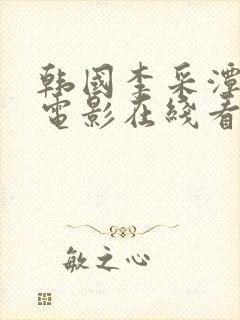 韩国李采潭
电影在线看
敏之心